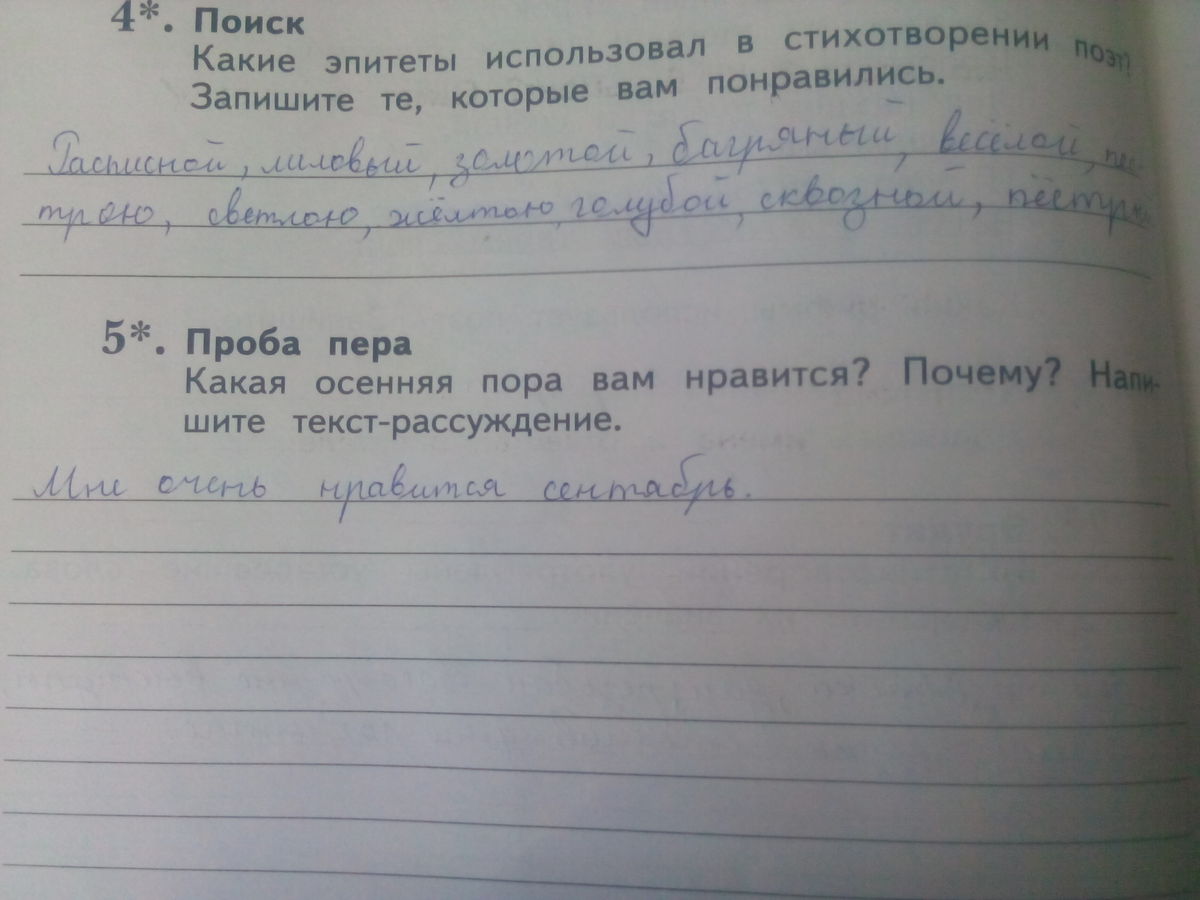 4*. Поиск
Какие эпитеты использовал в стихотворении поэт?
Запишите те, которые вам понравились.
Расписной, лиловый, золотой, багряный, весёлой, пёс-
трою, светлою, жёлтою, голубой, сквозной, пёстрый
5*. Проба пера
Какая осенняя пора вам нравится? Почему? Напи-
шите текст-рассуждение.
Мне очень нравится сентябрь.